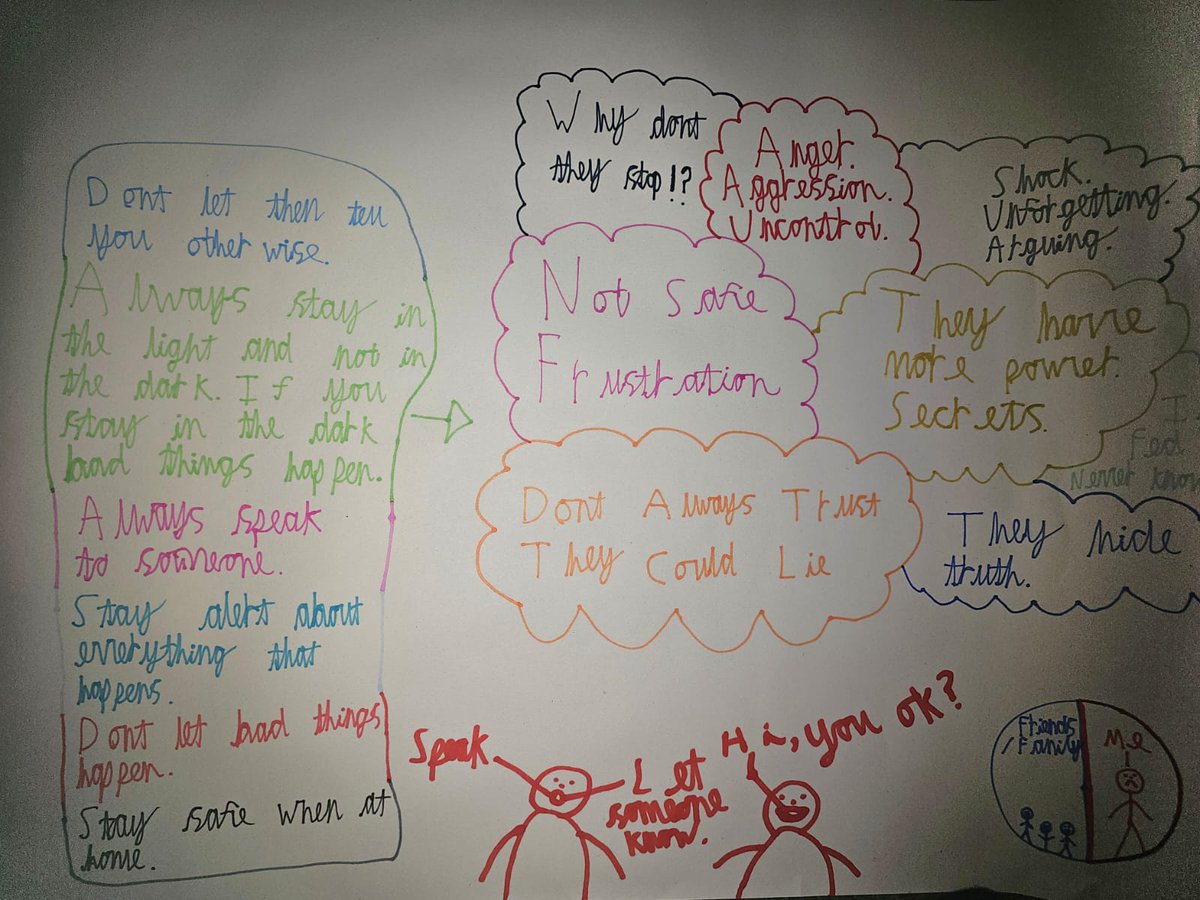 Dont let then tell
you otherwise.
Always stay in
the light and not in
the dark. If you
stay in the dark
bad things happen.
Always speak
to someone.
Stay alert about
everything that
happens.
Dont let bad things
happen.
Stay safe when at
home.
Why dont
they stop!?
Anger.
Aggression.
Uncontrol.
Shock.
Unforgetting.
Arguing.
Not Safe
Frustration
They have
more power.
Secrets.
I
Never know
Dont Always Trust
They Could Lie
They hide
truth.
Speak
Let
someone
know.
Hi, you ok?
Friends
/Family
Me